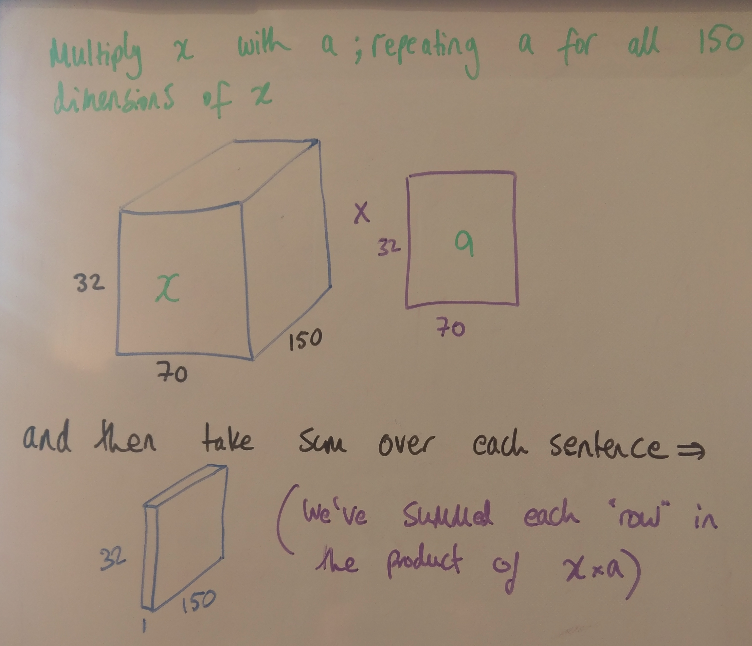 Multiply x with a ; repeating a for all 150
dimensions of x
x
32
70
150
x
32
a
70
and then take sum over each sentence ⇒
32
1
150
(We've summed each "row" in
the product of x×a)